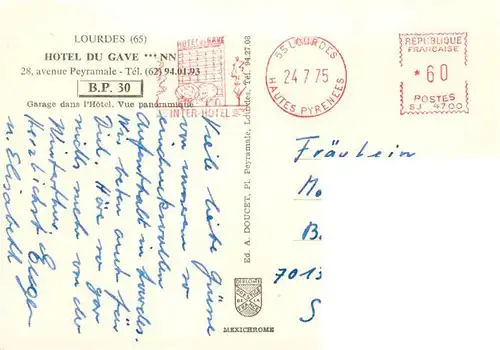 LOURDES (65)
HOTEL DU GAVE ***NN
28, avenue Peyramale - Tél. (62) 94.01.93
B.P. 30
Garage dans l'Hôtel. Vue panoramique
HOTEL DU GAVE
INTER-HOTEL
65 LOURDES
24 7 75
HAUTES PYRENEES
REPUBLIQUE
FRANCAISE
*60
POSTES
SJ 4700
Viele liebe Grüsse
von unserem so
eindrucksvollen
Aufenthalt in Lourdes.
Wir beten auch für
Dich. Höre so gar
nichts mehr von der
Winterthur.
Herzlichst Eugen
u. Elisabeth
Ed. A. DOUCET, Pl. Peyramale, Lourdes, Tél. 94.27.08
MEXICHROME
Fräulein
M.
B.
7013
S